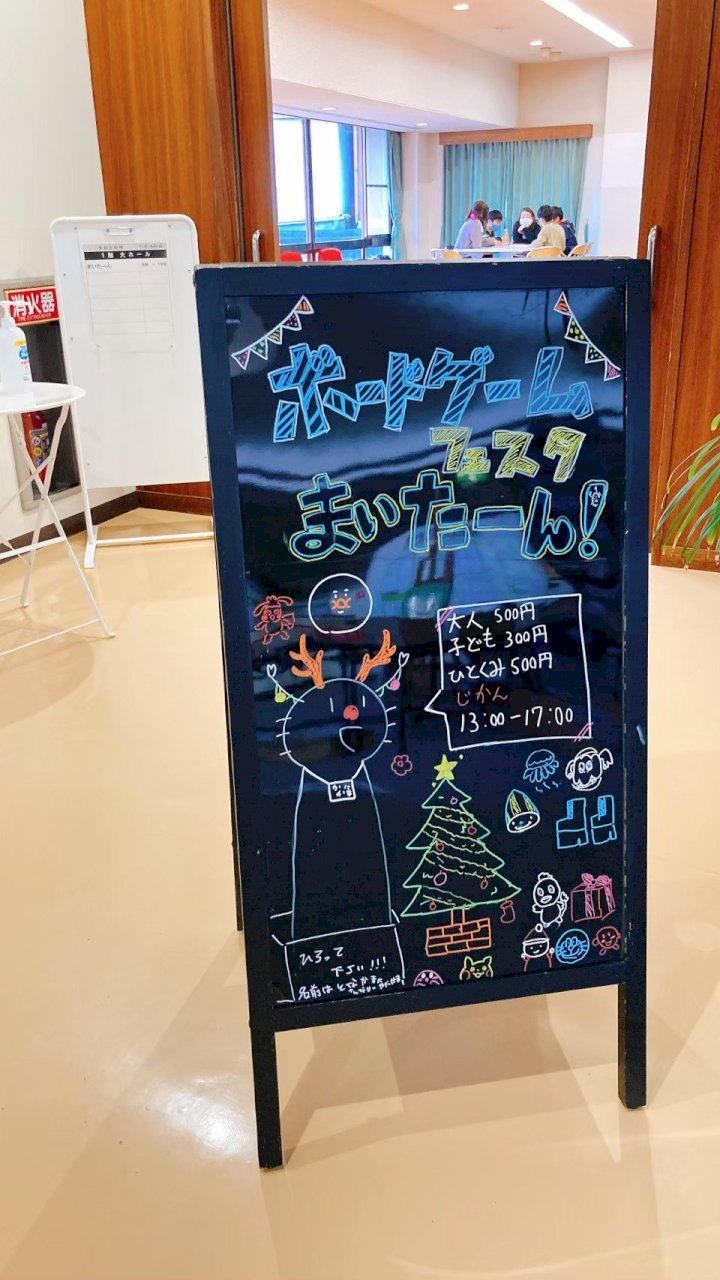 1階 大ホール
まいたーん
消火器
FIRE EXTINGUISHER
ボードゲーム
フェスタ
まいたーん!
大人 500円
子ども 300円
ひとくみ 500円
じかん
13:00-17:00
ひろって
下さい!!!
名前は